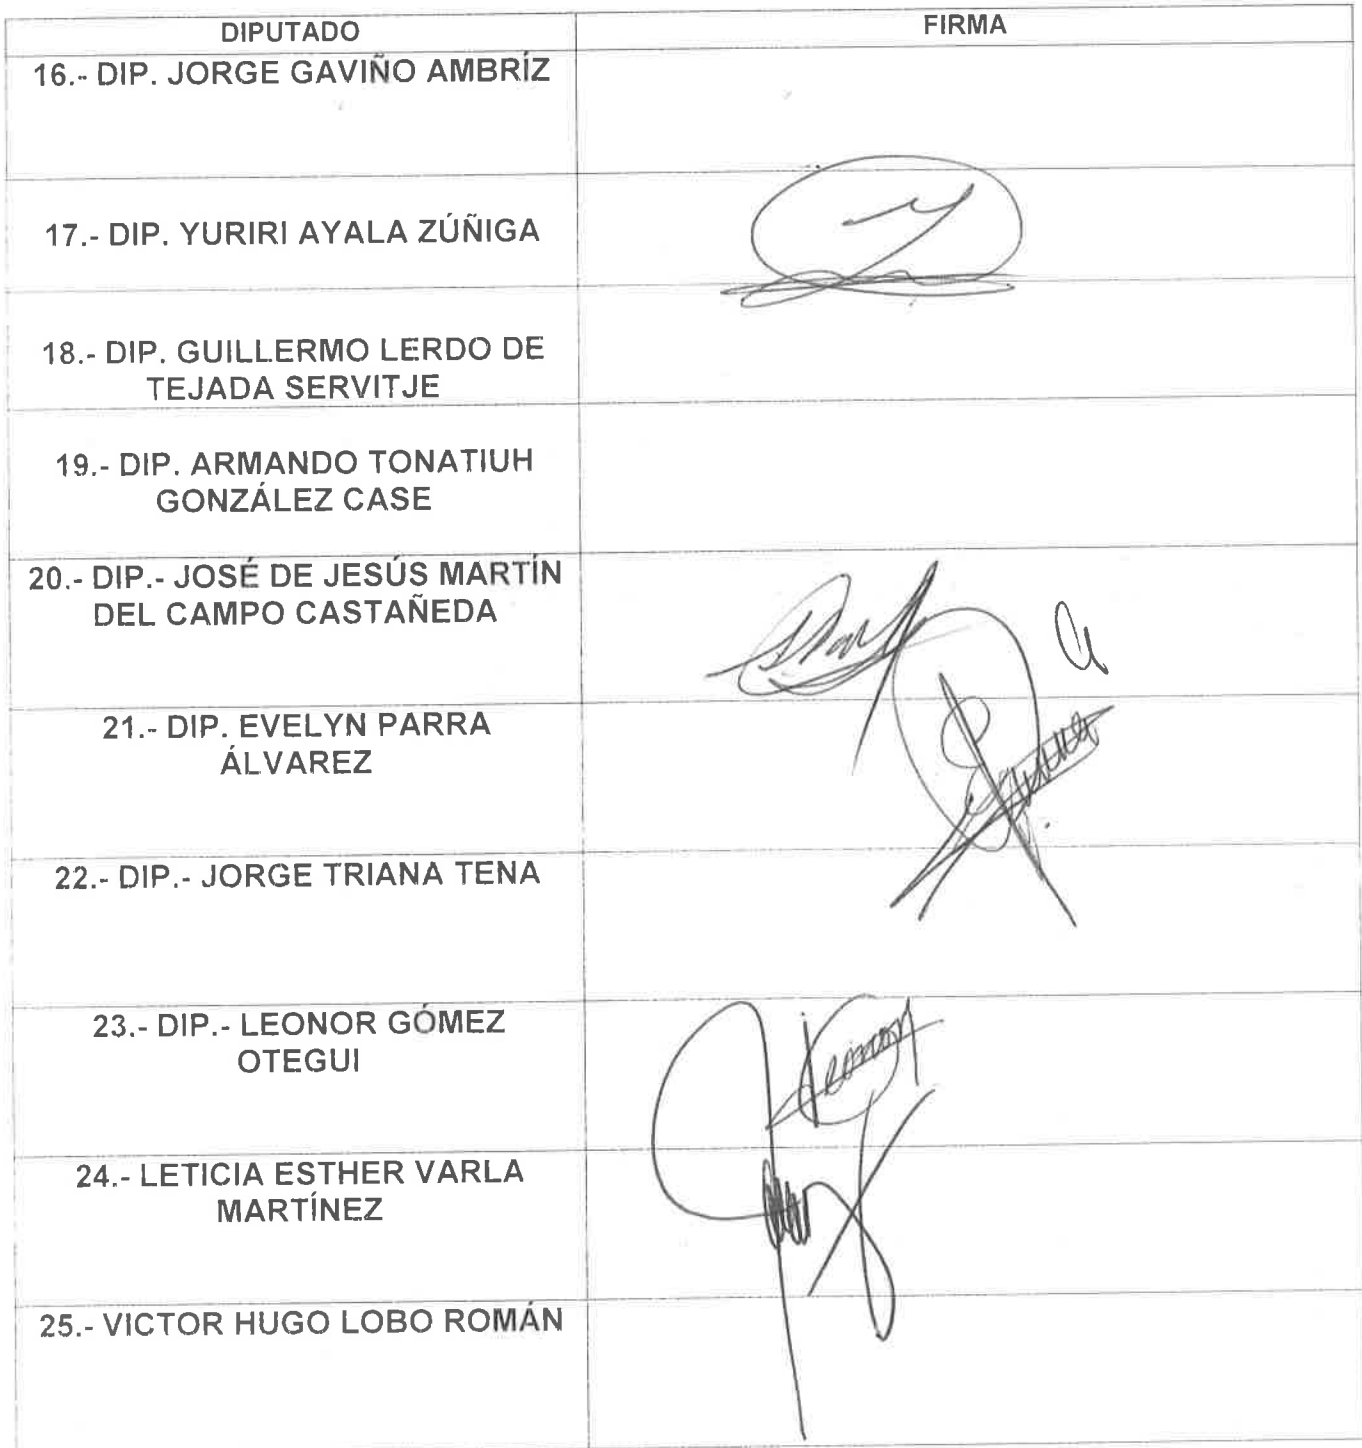 DIPUTADO FIRMA
16.- DIP. JORGE GAVIÑO AMBRÍZ
17.- DIP. YURIRI AYALA ZÚÑIGA
18.- DIP. GUILLERMO LERDO DE
TEJADA SERVITJE
19.- DIP. ARMANDO TONATIUH
GONZÁLEZ CASE
20.- DIP.- JOSÉ DE JESÚS MARTÍN
DEL CAMPO CASTAÑEDA
21.- DIP. EVELYN PARRA
ÁLVAREZ
22.- DIP.- JORGE TRIANA TENA
23.- DIP.- LEONOR GÓMEZ
OTEGUI
Leonor
24.- LETICIA ESTHER VARLA
MARTÍNEZ
25.- VICTOR HUGO LOBO ROMÁN